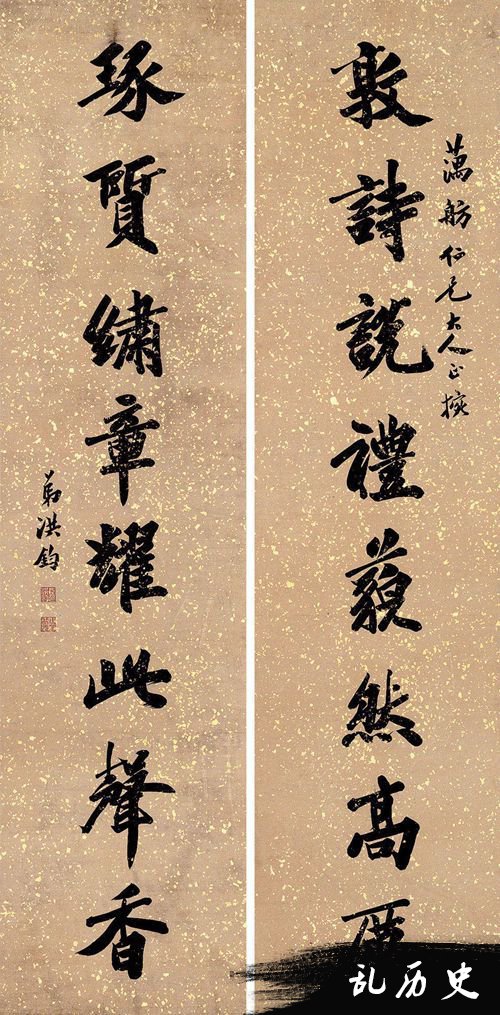 蕅舫仁兄大人正
敦詩說禮藐然高
琢質繡章耀此聲香
弟洪鈞
乱历史